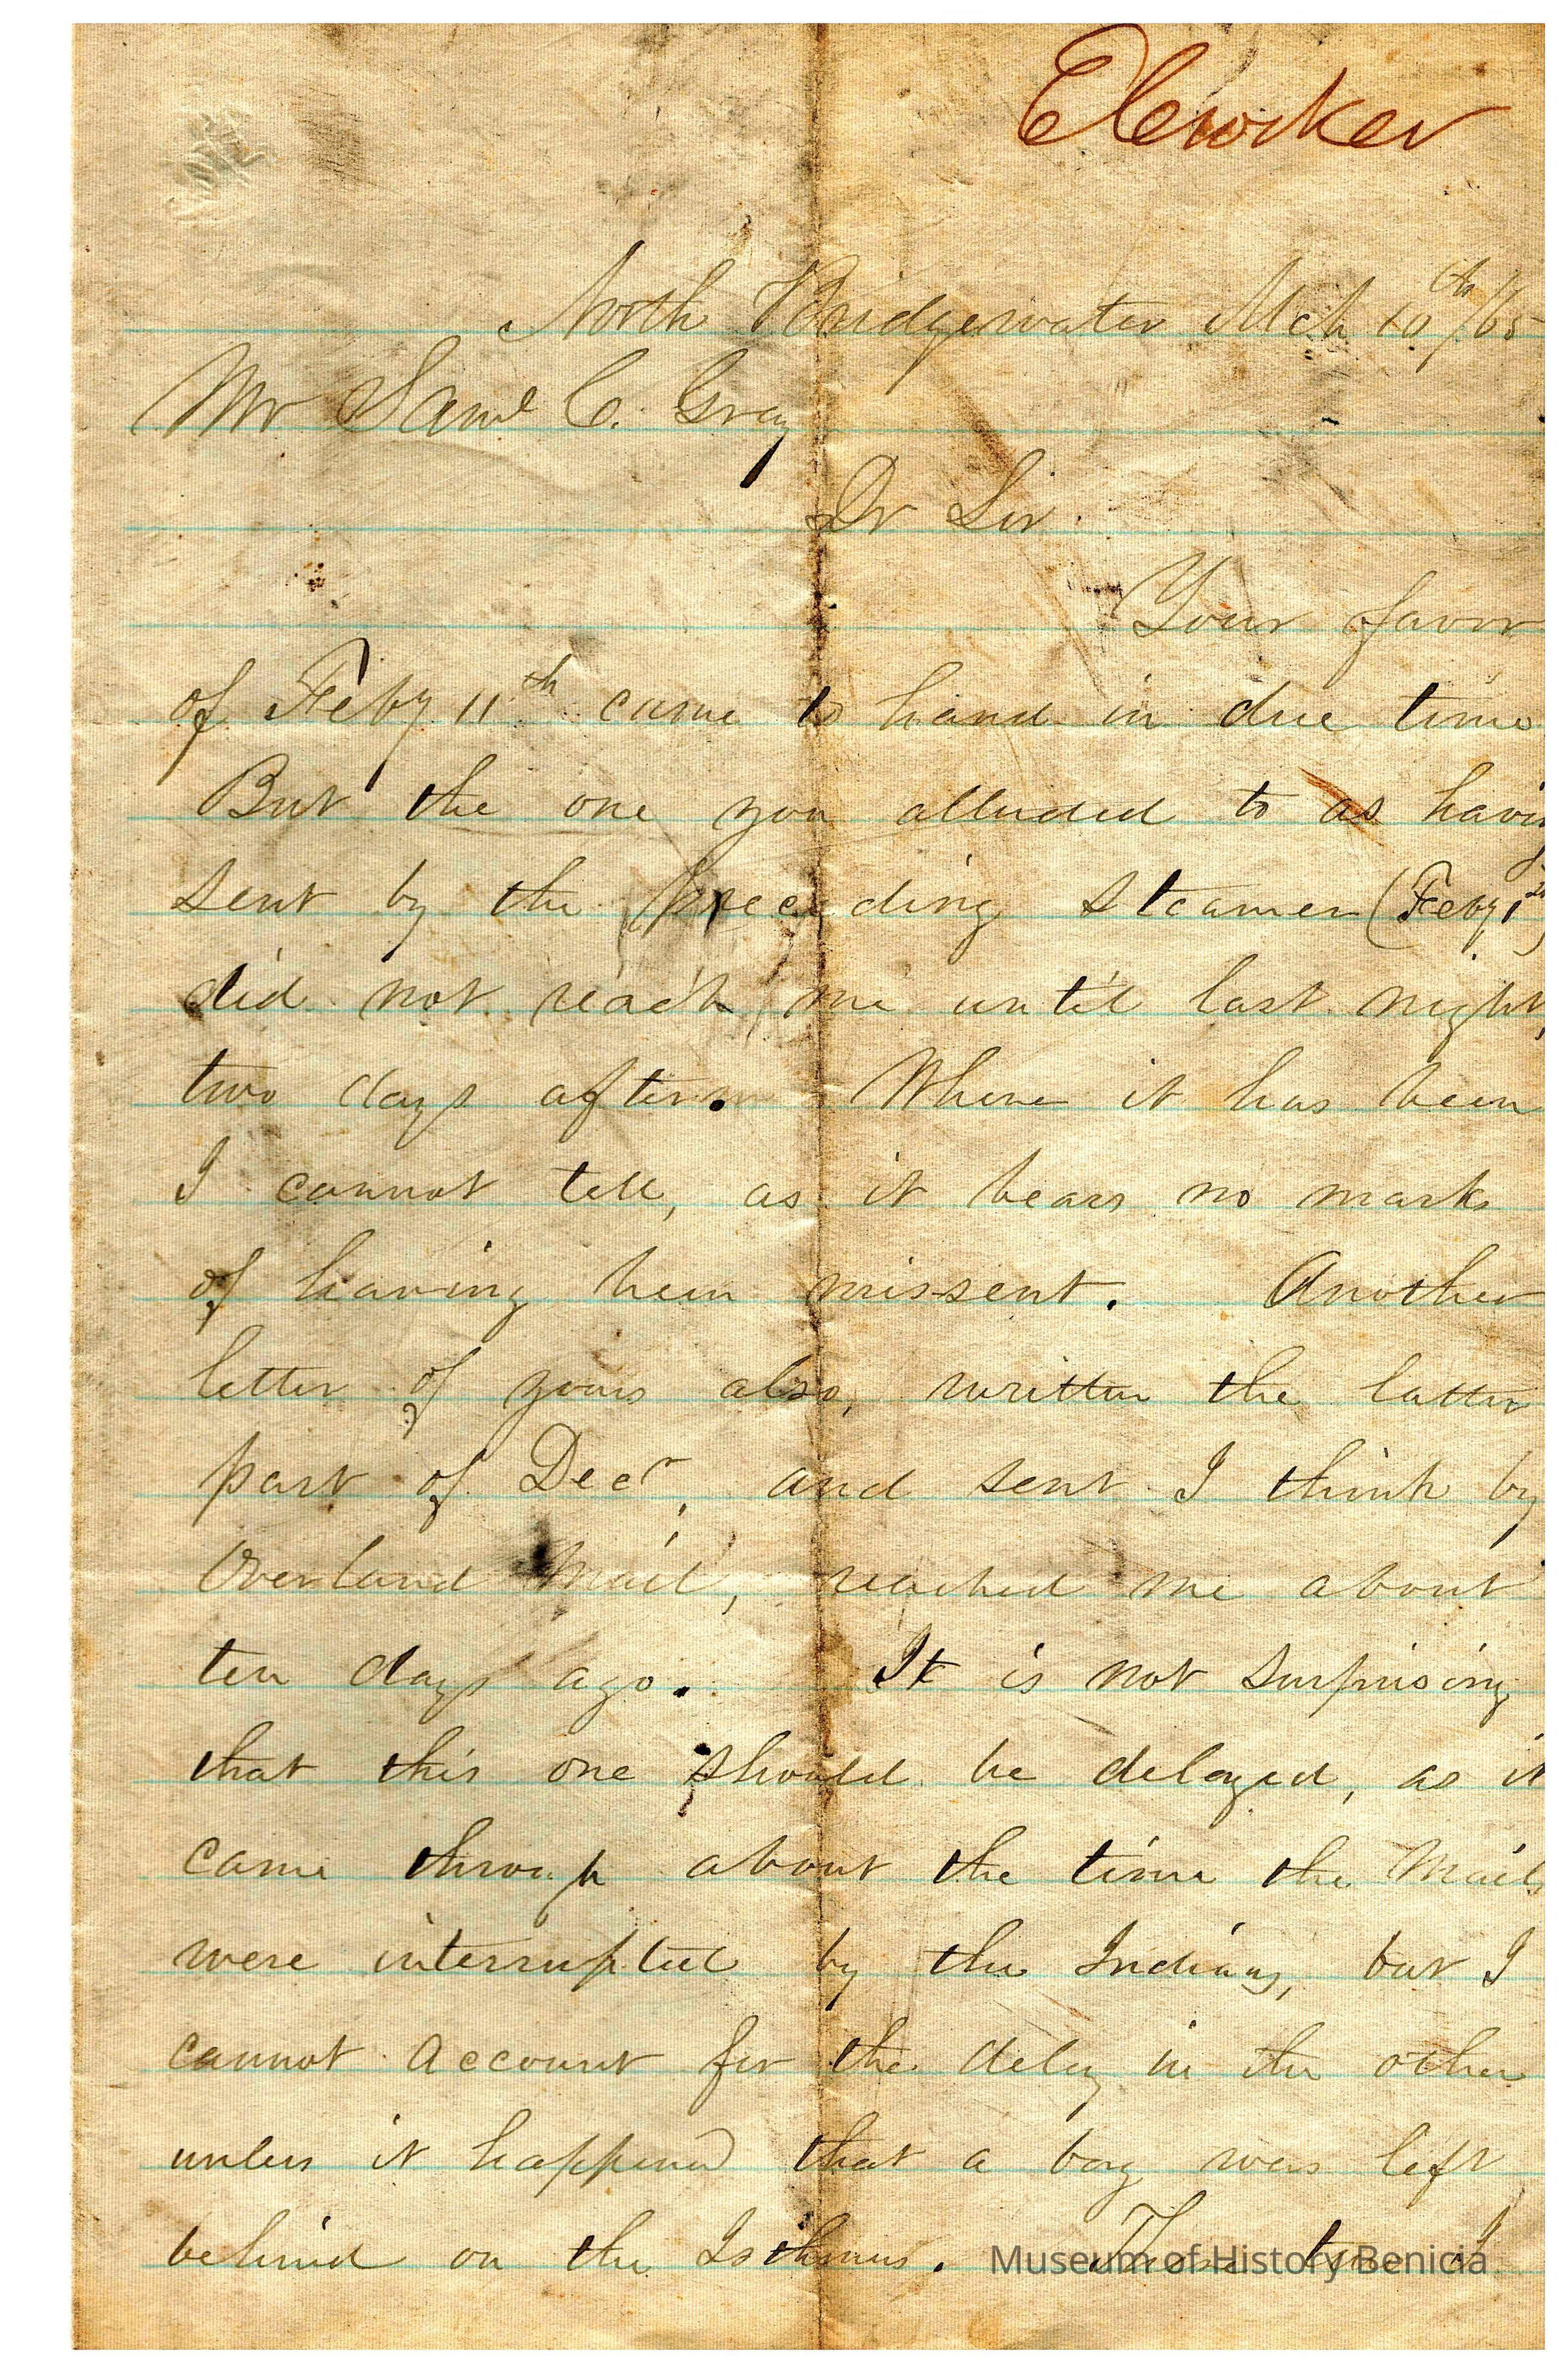 North Bridgewater Mch 10th/65
Mr Saml C. Gray
Dr Sir.
Your favor
of Feby 11th came to hand in due time
But the one you alluded to as having
sent by the preceeding steamer (Feby 1st)
did not reach me until last night,
two days after. Where it has been
I cannot tell, as it bears no marks
of having been missent. Another
letter of yours also, written the latter
part of Decr, and sent I think by
Overland Mail, reached me about
ten days ago. It is not surprising
that this one should be delayed, as it
came through about the time the Mails
were interrupted by the Indians, but I
cannot account for the delay in the other
unless it happened that a bag was left
behind on the Isthmus. These two I
Museum of History Benicia